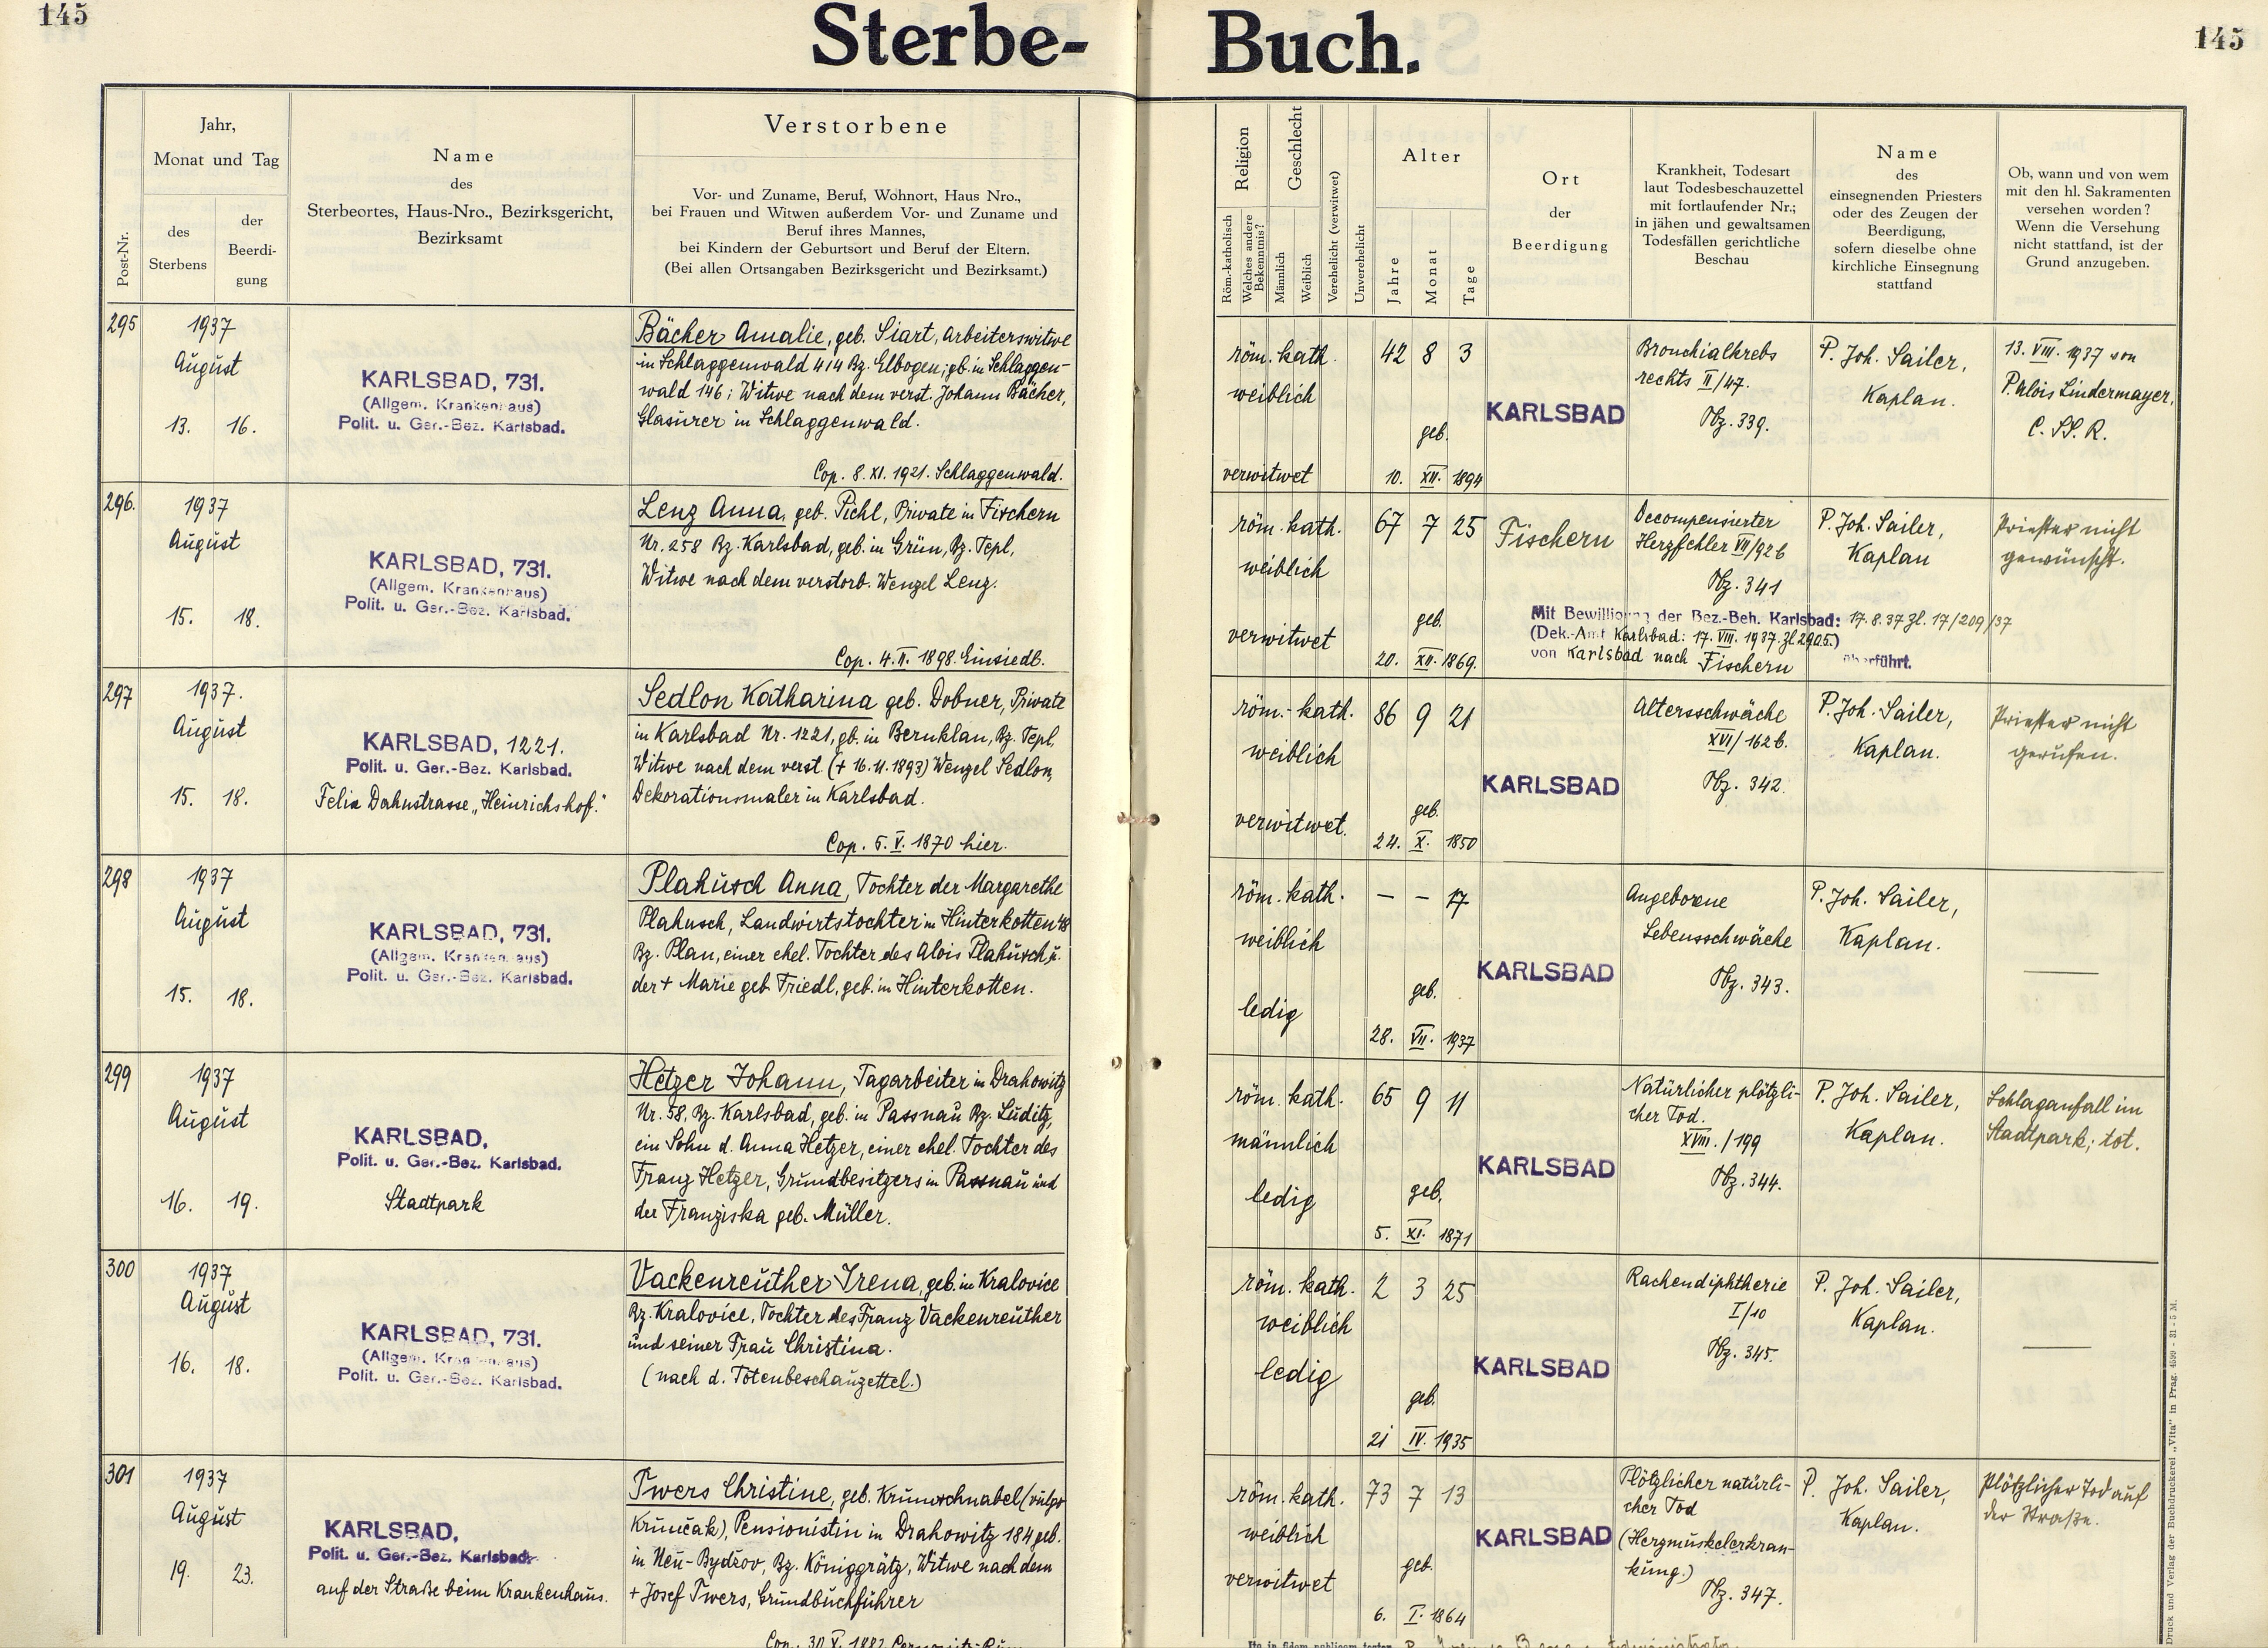 145
Sterbe-
Buch.
145
Post-Nr.
Jahr,
Monat und Tag
des
Sterbens
der
Beerdi-
gung
Name
des
Sterbeortes, Haus-Nro., Bezirksgericht,
Bezirksamt
Verstorbene
Vor- und Zuname, Beruf, Wohnort, Haus Nro.,
bei Frauen und Witwen außerdem Vor- und Zuname und
Beruf ihres Mannes,
bei Kindern der Geburtsort und Beruf der Eltern.
(Bei allen Ortsangaben Bezirksgericht und Bezirksamt.)
Religion
Röm.-katholisch
Welches andere
Bekenntnis?
Geschlecht
Männlich
Weiblich
Verehelicht (verwitwet)
Unverehelicht
Alter
Jahre
Monat
Tage
Ort
der
Beerdigung
Krankheit, Todesart
laut Todesbeschauzettel
mit fortlaufender Nr.;
in jähen und gewaltsamen
Todesfällen gerichtliche
Beschau
Name
des
einsegnenden Priesters
oder des Zeugen der
Beerdigung,
sofern dieselbe ohne
kirchliche Einsegnung
stattfand
Ob, wann und von wem
mit den hl. Sakramenten
versehen worden?
Wenn die Versehung
nicht stattfand, ist der
Grund anzugeben.
295
1937
August
13. 16.
KARLSBAD, 731.
(Allgem. Krankenhaus)
Polit. u. Ger.-Bez. Karlsbad.
Bächer Amalie, geb. Siart, Arbeiterswitwe
in Schlaggenwald 414 Bz. Elbogen; gb. in Schlaggen-
wald 146; Witwe nach dem verst. Johann Bächer,
Glasurer in Schlaggenwald.
Cop. 8. XI. 1921. Schlaggenwald.
röm. kath.
weiblich
verwitwet
42 8 3
geb.
10. XII. 1894
KARLSBAD
Bronchialkrebs
rechts II/47.
Tbz. 339.
P. Joh. Sailer,
Kaplan.
13. VIII. 1937 von
P. Alois Lindermayer,
C. SS. R.
296.
1937
August
15. 18.
KARLSBAD, 731.
(Allgem. Krankenhaus)
Polit. u. Ger.-Bez. Karlsbad.
Lenz Anna, geb. Pichl, Private in Fischern
Nr. 258 Bz. Karlsbad, geb. in Grün, Bz. Tepl,
Witwe nach dem verstorb. Wenzel Lenz.
Cop. 4. II. 1898. Einsiedl.
röm. kath.
weiblich
verwitwet
67 7 25
geb.
20. XII. 1869.
Fischern
Decompensierter
Herzfehler VII/92 b
Tbz. 341
P. Joh. Sailer,
Kaplan
Priester nicht
gewünscht.
Mit Bewilligung der Bez.-Beh. Karlsbad: 17. 8. 37 Zl. 17/209/37
(Dek.-Amt Karlsbad: 17. VIII. 1937. Zl 2905.)
von Karlsbad nach Fischern überführt.
297
1937.
August
15. 18.
KARLSBAD, 1221.
Polit. u. Ger.-Bez. Karlsbad.
Felix Dahnstrasse „Heinrichshof."
Sedlon Katharina geb. Dobner, Private
in Karlsbad Nr. 1221, gb. in Bernklau, Bz. Tepl,
Witwe nach dem verst. (+ 16. 11. 1893) Wenzel Sedlon,
Dekorationsmaler in Karlsbad.
Cop. 5. V. 1870 hier.
röm.-kath.
weiblich
verwitwet.
86 9 21
geb.
24. X. 1850
KARLSBAD
Altersschwäche
XVI/162 b.
Tbz. 342.
P. Joh. Sailer,
Kaplan.
Priester nicht
gerufen.
298
1937
August
15. 18.
KARLSBAD, 731.
(Allgem. Krankenhaus)
Polit. u. Ger.-Bez. Karlsbad.
Plahusch Anna, Tochter der Margarethe
Plahusch, Landwirtstochter in Hinterkotten 48
Bz. Plan, einer ehel. Tochter des Alois Plahusch u.
der + Marie geb. Friedl, geb. in Hinterkotten.
röm. kath.
weiblich
ledig
— — 17
geb.
28. VII. 1937
KARLSBAD
Angeborene
Lebensschwäche
Tbz. 343.
P. Joh. Sailer,
Kaplan.
—
299
1937
August
16. 19.
KARLSBAD,
Polit. u. Ger.-Bez. Karlsbad.
Stadtpark
Hetzer Johann, Tagarbeiter in Drahowitz
Nr. 58, Bz. Karlsbad, geb. in Passnau Bz. Luditz,
ein Sohn d. Anna Hetzer, einer ehel. Tochter des
Franz Hetzer, Grundbesitzers in Passnau und
der Franziska geb. Müller.
röm. kath.
männlich
ledig
65 9 11
geb.
5. XI. 1871
KARLSBAD
Natürlicher plötzli-
cher Tod.
XVIII./199
Tbz. 344.
P. Joh. Sailer,
Kaplan.
Schlaganfall im
Stadtpark; tot.
300
1937
August
16. 18.
KARLSBAD, 731.
(Allgem. Krankenhaus)
Polit. u. Ger.-Bez. Karlsbad.
Vackenreuther Irena, geb. in Kralovice
Bz. Kralovice, Tochter des Franz Vackenreuther
und seiner Frau Christina.
(nach d. Totenbeschauzettel.)
röm. kath.
weiblich
ledig
2 3 25
geb.
21 IV. 1935
KARLSBAD
Rachendiphtherie
I/10
Tbz. 345.
P. Joh. Sailer,
Kaplan.
—
301
1937
August
19. 23.
KARLSBAD,
Polit. u. Ger.-Bez. Karlsbad.
auf der Straße beim Krankenhaus.
Twers Christine, geb. Krumschnabel (vulgo
Krunčak), Pensionistin in Drahowitz 184 geb.
in Neu-Bydžov, Bz. Königgrätz, Witwe nach dem
+ Josef Twers, Grundbuchführer
Cop. 30. X. 1882
röm. kath.
weiblich
verwitwet
73 7 13
geb.
6. I. 1864
KARLSBAD
Plötzlicher natürli-
cher Tod
(Herzmuskelerkran-
kung.)
Tbz. 347.
P. Joh. Sailer,
Kaplan.
Plötzlicher Tod auf
der Straße.
Druck und Verlag der Buchdruckerei „Vita" in Prag. 4599 - 31 - 5 M.